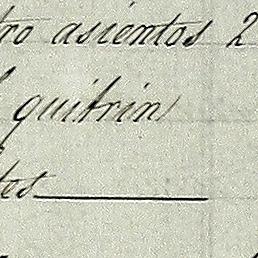 tro asientos 2
quitrin
tes